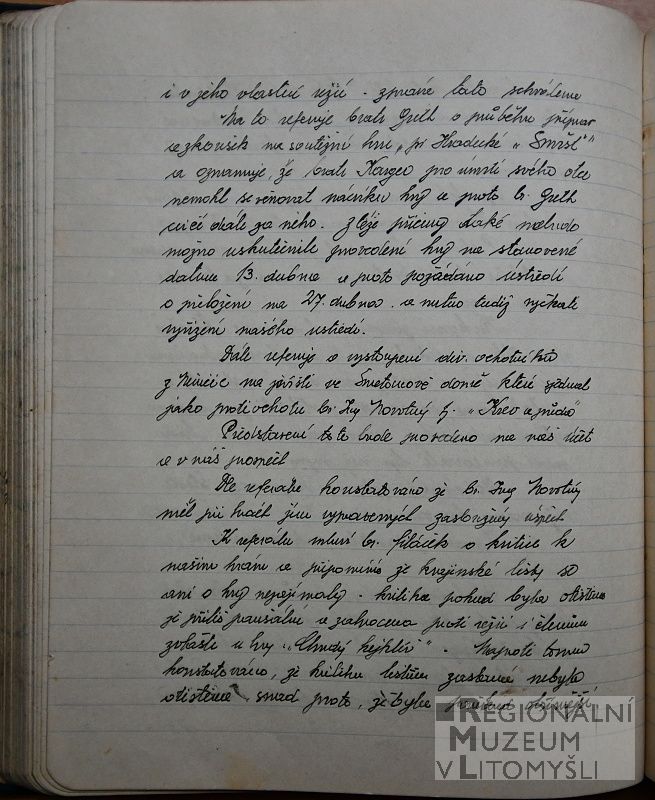 i v jeho vlastní režii - zpráva tato schválena
Na to referuje bratr Greth o průběhu příprav
a zkoušek na soutěžní hru „při Hradecké „Smršť"
a oznamuje, že bratr Karger pro úmrtí svého otce
nemohl se věnovat nácviku hry a proto br. Greth
cvičí dále za něho. Z téže příčiny také nebude
možno uskutečnit provedení hry na stanovené
datum 13. dubna a proto požádáno ústředí
o přeložení na 27. dubna a nutno tudíž vyčkati
vyřízení našeho ústředí.
Dále referuje o vystoupení div. ochotníků
z na jevišti ve Smetanově domě které sjednal
jako protiochotu br. Ing Novotný hj. „Krev a půda"
Představení toto bude provedeno na náš účet
a v náš prospěch
Dle referátu konstatováno že br. Ing Novotný
měl při hraní jím zasloužený úspěch
K referátu mluví br. Filáček o kritice k
našim hrám a připomíná že krajinské listy se
ani o hry nezajímaly - kritika pokud byla otištěna
je příliš paušální a zahrocena proti režii i členům
zvláště u hry „Chudý kejklíř" - Naproti tomu
konstatováno, že kritika listům zaslaná nebyla
otištěna snad proto, že byla
REGIONÁLNÍ
MUZEUM
V LITOMYŠLI